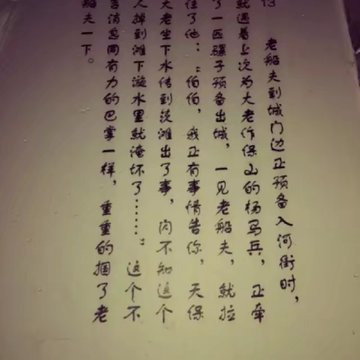 13
老船夫到城门边正预备入河街时，
就遇着上次为大老作保山的杨马兵，正牵
了一匹骡子预备出城，一见老船夫，就拉
住了他：“伯伯，我正有事情告你，天保
大老坐下水传到茨滩出了事，闪不知这个
人掉到滩下漩水里就淹坏了……”这个不
吉消息同有力的巴掌一样，重重的掴了老
船夫一下。